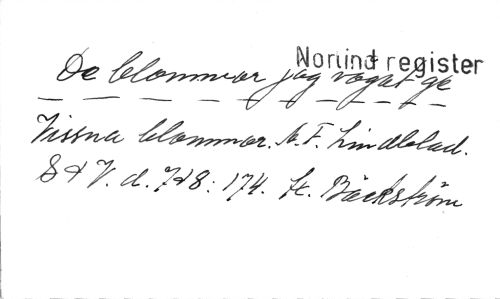 Norlind register
De blommor jag vågat ge
Vissna blommor. A. F. Lindblad.
S & V. d. 7&8: 174. H. Bäckström